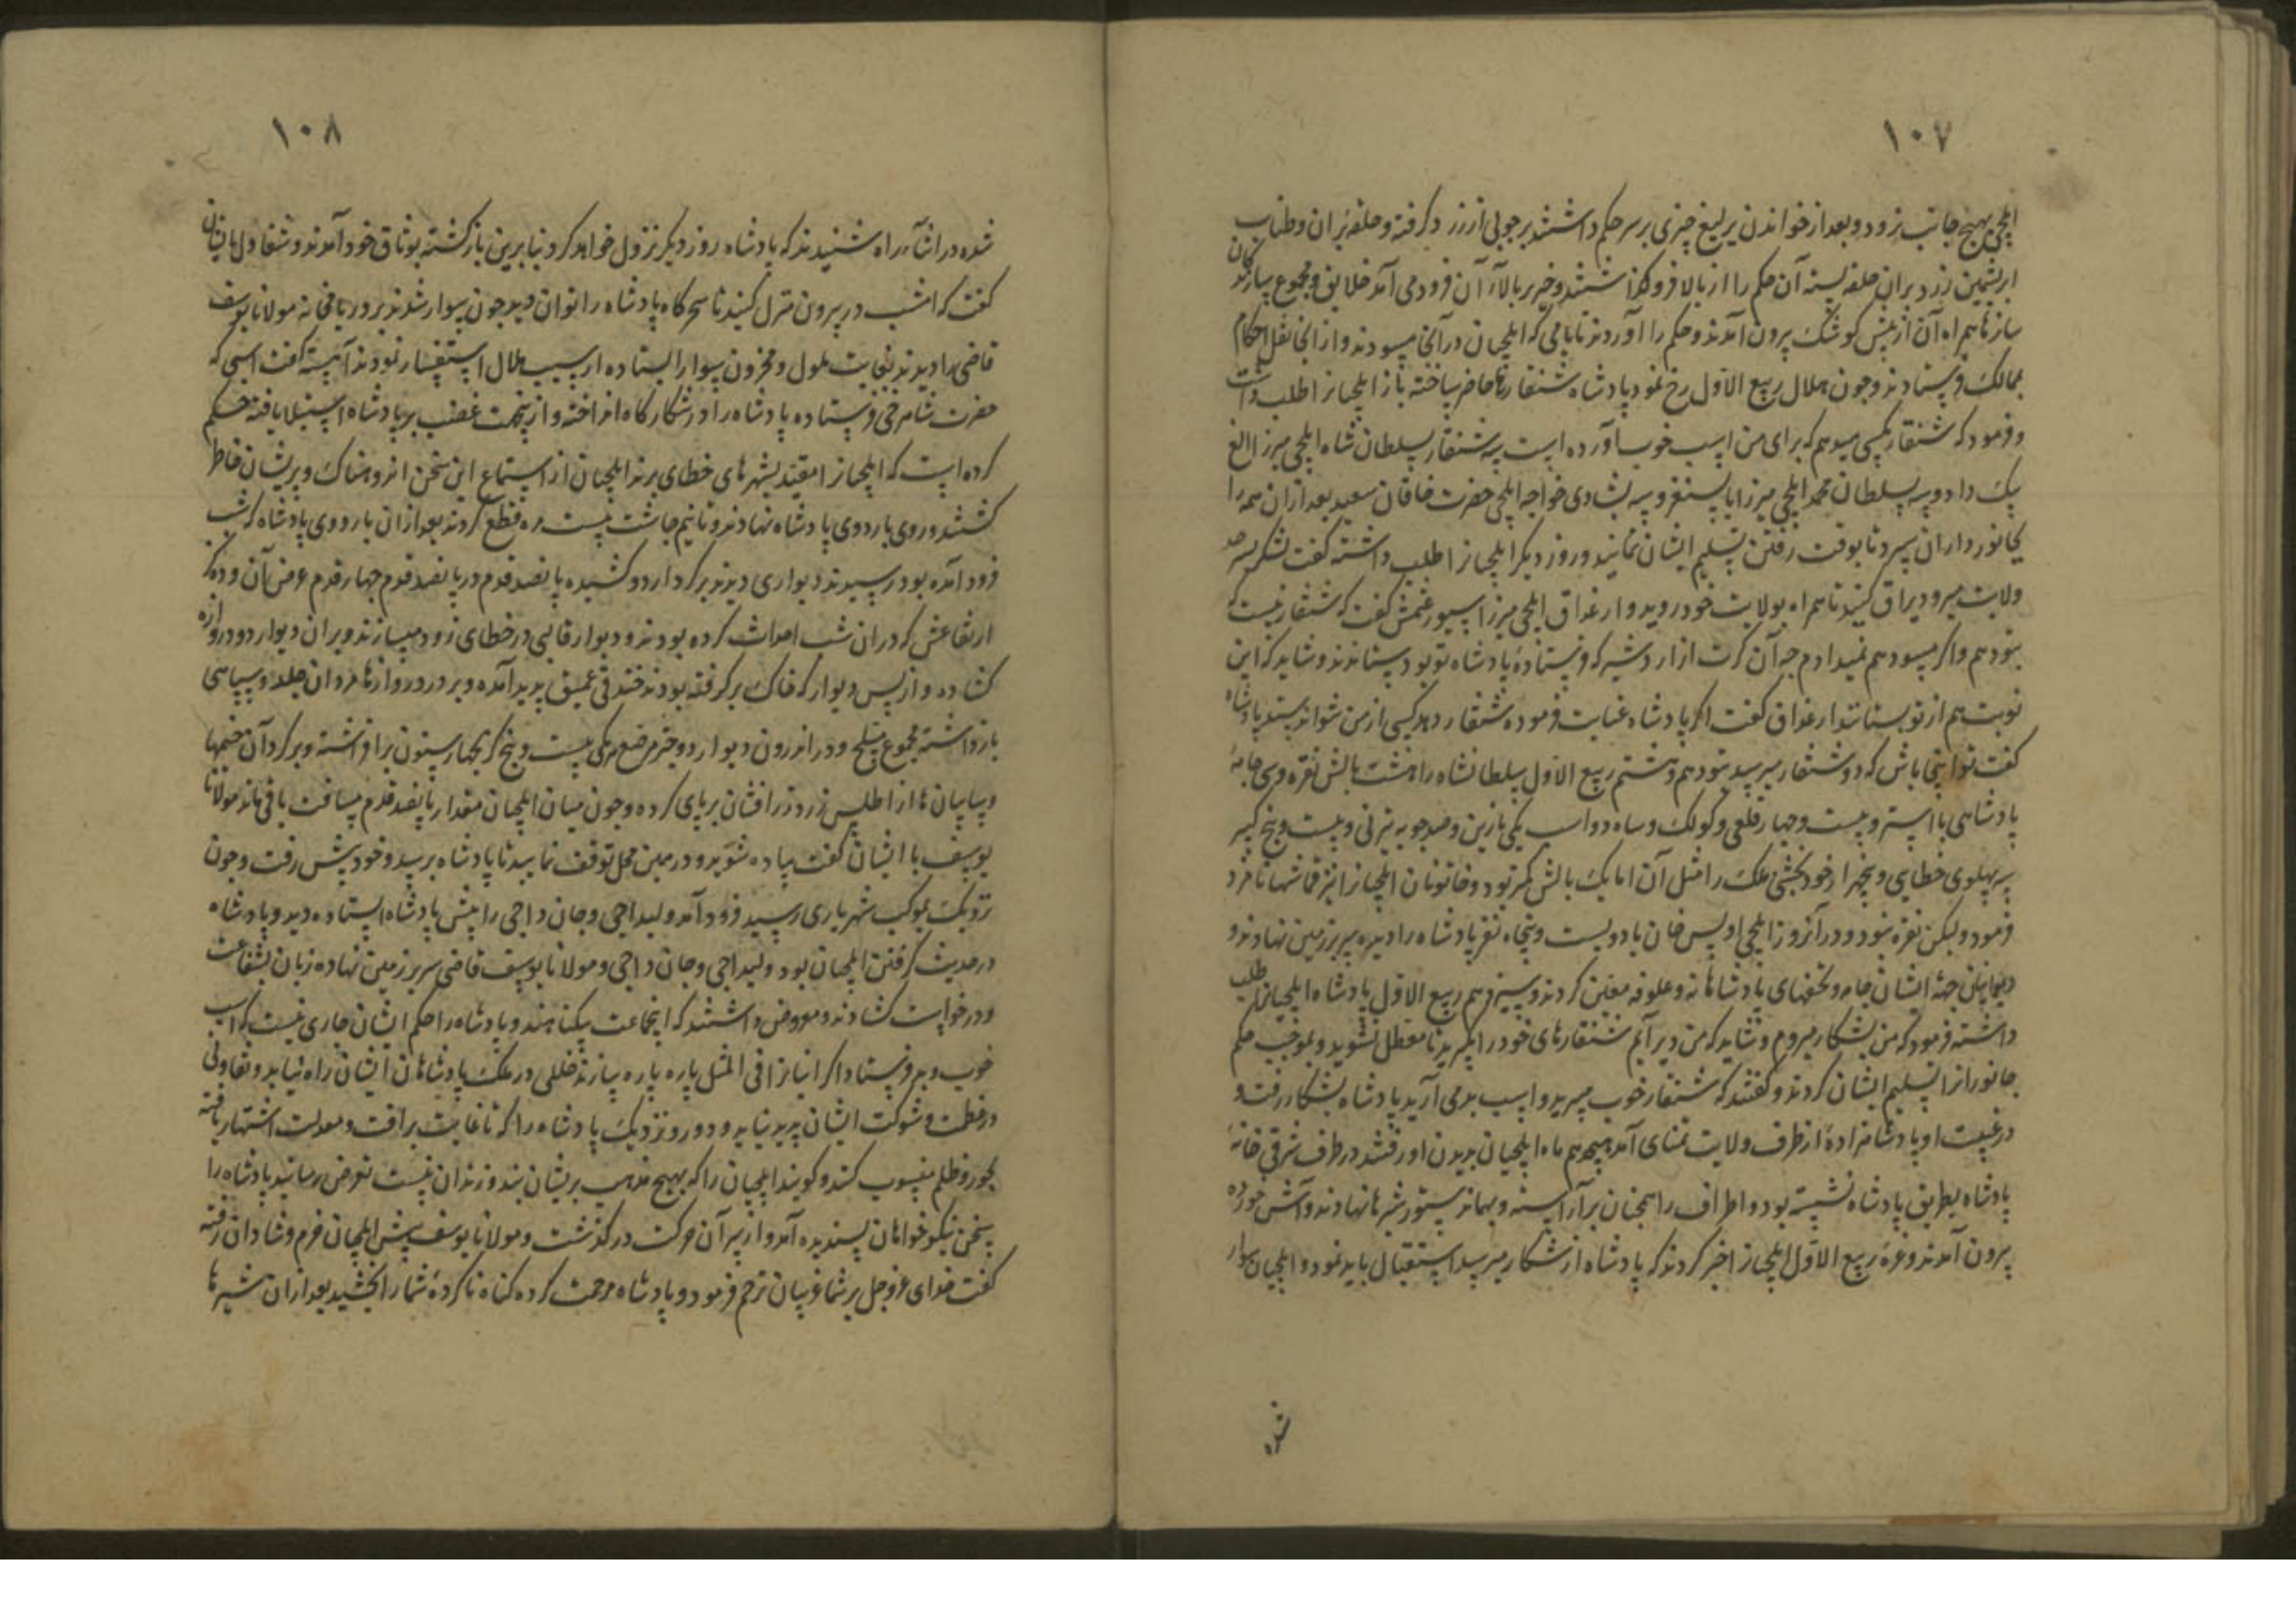 ۱۰۷
ایلچی بهیچ جانب نرود و بعد از خواندن یرلیغ چیزی بر سر حکم داشتند بر چوبی از زر گرفته و حلقه بران و طناب
ابریشمین زرد بران حلقه بسته آن حکم را از بالا فرو گذاشتند و خبر بالای آن فرود می آمد خلایق و مجموع سازندگان
سازها همراه آن از پیش کوشک بیرون آمدند و حکم را آوردند تا یامی که ایلچیان در آنجا میبودند و از انجا نقل احکام
بممالک فرستادند و چون هلال ربیع الاول رخ نمود پادشاه شنقارها حاضر ساخته باز ایلچیانرا طلب داشت
و فرمود که شنقار بکسی میدهم که برای من اسب خوب آورده است سه شنقار بسلطان شاه ایلچی میرزا الغ
بیک داد و سه بسلطان محمد ایلچی میرزا بایسنغر و سه بشادی خواجه ایلچی حضرت خاقان سعید بعد ازان همه را
بجانورداران سپرد تا بوقت رفتن تسلیم ایشان نمایند و روز دیگر ایلچیانرا طلب داشته گفت لشکر بسرحد
ولایت میرود یراق کنید تا همراه بولایت خود روید و ارغداق ایلچی میرزا سیورغتمش گفت که شنقار نیست که
بتو دهم و اگر میبود هم نمیدادم چه آن کرت از اردشیر که فرستادهٔ پادشاه تو بود بستاندند و شاید که این
نوبت هم از تو بستانند ارغداق گفت اگر پادشاه عنایت فرموده شنقار دهد کسی از من نتواند ستد پادشاه
گفت تو اینجا باش که دو شنقار میرسد بتو دهم و هشتم ربیع الاول سلطانشاه را هشت بالش نقره و سی جامهٔ
پادشاهی با استر و بیست و چهار قلعی و کولک و ساه دو اسب یکی با زین و صد چوبه تیر نی و بیست و پنج کیبر
سه پهلوی خطایی و پنجهزار خود بخشی ملک را مثل آن اما یک بالش کمتر بود و خاتونان ایلچیانرا نیز قماشها نامزد
فرمود و لیکن نقره نبود و در آنروز ایلچی اویس خان با دویست و پنجاه نفر پادشاه را دیده سر بر زمین نهادند و
دیوانیان جهة ایشان جامه و تحفهای پادشاهانه و علوفه معین کردند و سیزدهم ربیع الاول پادشاه ایلچیانرا طلب
داشته فرمود که من بشکار میروم و شاید که من دیر آیم شنقارهای خود را بگیرید تا معطل نشوید و بموجب حکم
جانورانرا تسلیم ایشان کردند و گفتند که شنقار خوب میبرید و اسب بد می آرید پادشاه بشکار رفت و
در غیبت او پادشاهزادهٔ از طرف ولایت تمنای آمد هیجدهم ماه ایلچیان بدیدن او رفتند در طرف شرقی خانهٔ
پادشاه بطریق پادشاه نشسته بود و اطراف را همچنان برآراسته و بهمان دستور شیرها نهادند و آش خورده
بیرون آمدند و غرهٔ ربیع الاول ایلچیانرا خبر کردند که پادشاه از شکار میرسد استقبال باید نمود و ایلچیان سوار
شده
۱۰۸
شده در اثناء راه شنیدند که پادشاه روز دیگر نزول خواهد کرد بنابرین بازگشته بوثاق خود آمدند و شغاول با ایشان
گفت که امشب در بیرون منزل کنید تا سحرگاه پادشاه را توان دید چون سوار شدند بر در یامخانه مولانا یوسف
قاضی را دیدند بغایت ملول و محزون سوار ایستاده از سبب ملال استفسار نمودند آهسته گفت اسبی که
حضرت شاهرخی فرستاده پادشاه را در شکارگاه انداخته و ازین جهت غضب بر پادشاه استیلا یافته حکم
کرده است که ایلچیانرا مقید بشهرهای خطای برند ایلچیان از استماع این سخن اندوهناک و پریشان خاطر
گشتند و روی باردوی پادشاه نهادند و تا نیم چاشت بیست مره قطع کردند بعد ازان باردوی پادشاه که شب
فرود آمده بود رسیدند دیواری دیدند بر گرد اردو کشیده پانصد قدم در پانصد قدم چهار قدم عرض آن و ده گز
ارتفاعش که دران شب احداث کرده بودند و دیوار قالبی در خطای زود میسازند و بران دیوار دو دروازه
گشاده و از پس دیوار که خاک برگرفته بودند خندقی عمیق پدید آمده و بر در دروازها مردان جلد و سپاهی
بازداشته مجموع مسلح و در اندرون دیوار دو خیمه مربع هر یکی بیست و پنج گز بچهار ستون برافراشته و بر گرد آن خیمها
و سایبانها از اطلس زرد زرافشان برپای کرده و چون میان ایلچیان مقدار پانصد قدم مسافت باقی ماند مولانا
یوسف با ایشان گفت پیاده شوید و در همین محل توقف نمایید تا پادشاه برسد و خود پیش رفت و چون
نزدیک بموکب شهریاری رسید فرود آمد و لیداجی و جان داجی را پیش پادشاه ایستاده دید و پادشاه
در حدیث گرفتن ایلچیان بود و لیداجی و جان داجی و مولانا یوسف قاضی سر بر زمین نهاده زبان بشفاعت
و درخواست گشادند و معروض داشتند که اینجماعت بیگناهند و پادشاه را حکم ایشان جاری نیست که اسب
خوب و بد فرستاد اگر اینانرا فی المثل پاره پاره سازند خللی در ملک پادشاهان ایشان راه نیابد و تفاوتی
در عظمت و شوکت ایشان پدید نیاید و دور و نزدیک پادشاه را که تا غایت برافت و معدلت اشتهار یافته
بجور و ظلم منسوب کنند و گویند ایلچیان را که بهیچ مذهب بریشان بند و زندان نیست تعرض رسانید پادشاه را
سخن نیکوخواهان پسندیده آمد و از سر آن حرکت درگذشت و مولانا یوسف پیش ایلچیان خرم و شادان رفته
گفت خدای عزوجل بر شما غریبان ترحم فرمود و پادشاه مرحمت کرده گناه ناکردهٔ شما را بخشید بعد ازان شیرها